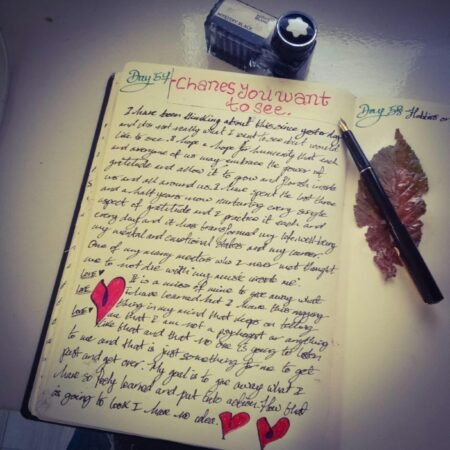 MYSTERY BLACK
Day 57
Chanes You want
to see.
Day 58 Hobbies or
I have been thinking about this since yesterday
and did not really what I want to see but would
like to see. I hope a hope for humanity that each
and everyone of us may embrace the power of
gratitude and allow it to grow and florish inside
us and all around us. I have spent the last three
and a half years now nurturing every single
aspect of gratitude and I practice it each and
every day and it has transformed my life, well-being
my mental and emotional states and my career.
One of my many mentors who I never met thought
me to "not die with my music inside me".
Love It is a miss of mine to give away what
Love I have learned but I have this nagging
Love thing in my mind that keeps on telling
me that I am not a psychiast or anything
like that and that no one is going to listen
to me and that is just something for me to get
past and get over. My goal is to give away what I
have so freely learned and put into action. How that
is going to look I have no idea.